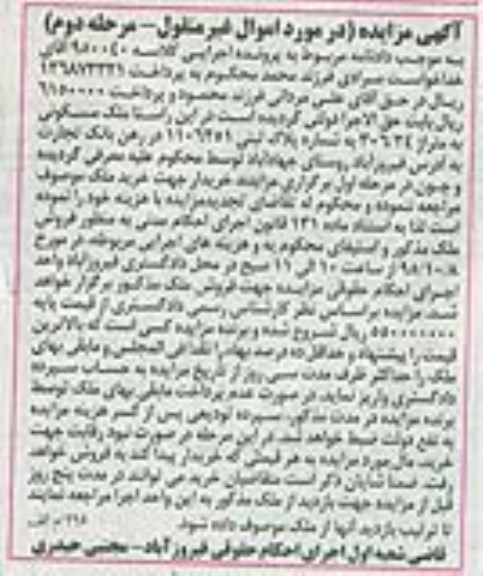 آگهی مزایده (در مورد اموال غیر منقول - مرحله دوم)
به موجب دادنامه مربوط به پرونده اجرایی کلاسه ۹۸۰۰۴۰ آقای
خداخواست مرادی فرزند محمد محکوم به پرداخت ۱۳۶۸۷۳۳۳۱
ریال در حق آقای علی مردانی فرزند محمود و پرداخت ۶۱۵۰۰۰۰
ریال بابت حق الاجرا دولتی گردیده است در این راستا ملک مسکونی
به متراژ ۳۰۶/۳۴ به شماره پلاک ثبتی ۱۱۰۶۳۵۱ در رهن بانک تجارت
به آدرس فیروزآباد روستای جهادآباد توسط محکوم علیه معرفی گردیده
و چون در مرحله اول برگزاری مزایده خریدار جهت خرید ملک موصوف
مراجعه ننموده و محکوم له تقاضای تجدید مزایده با هزینه خود را نموده
است لذا به استناد ماده ۱۳۱ قانون اجرای احکام مدنی به منظور فروش
ملک مذکور و استیفای محکوم به و هزینه های اجرایی مربوطه در مورخ
۹۸/۱۰/۸ از ساعت ۱۰ الی ۱۱ صبح در محل دادگستری فیروزآباد واحد
اجرای احکام حقوقی مزایده جهت فروش ملک مذکور برگزار خواهد
شد. مزایده بر اساس نظر کارشناس رسمی دادگستری از قیمت پایه
۵۵۰۰۰۰۰۰۰ ریال شروع شده و برنده مزایده کسی است که بالاترین
قیمت را پیشنهاد و حداقل ده درصد بها را نقدا فی المجلس و مابقی بهای
ملک را حداکثر ظرف مدت سی روز از تاریخ مزایده به حساب سپرده
دادگستری واریز نماید. در صورت عدم پرداخت مابقی بهای ملک توسط
برنده مزایده در مدت مذکور، سپرده تودیعی پس از کسر هزینه مزایده
به نفع دولت ضبط خواهد شد. در این مرحله در صورت نبود رقابت جهت
خرید، مال مورد مزایده به هر قیمتی که خریدار پیدا کند به فروش خواهد
رفت. ضمنا شایان ذکر است متقاضیان خرید می توانند در مدت پنج روز
قبل از مزایده جهت بازدید از ملک مذکور به این واحد اجرا مراجعه نمایند
تا ترتیب بازدید آنها از ملک موصوف داده شود. م الف
قاضی شعبه اول اجرای احکام حقوقی فیروزآباد - مجتبی حیدری